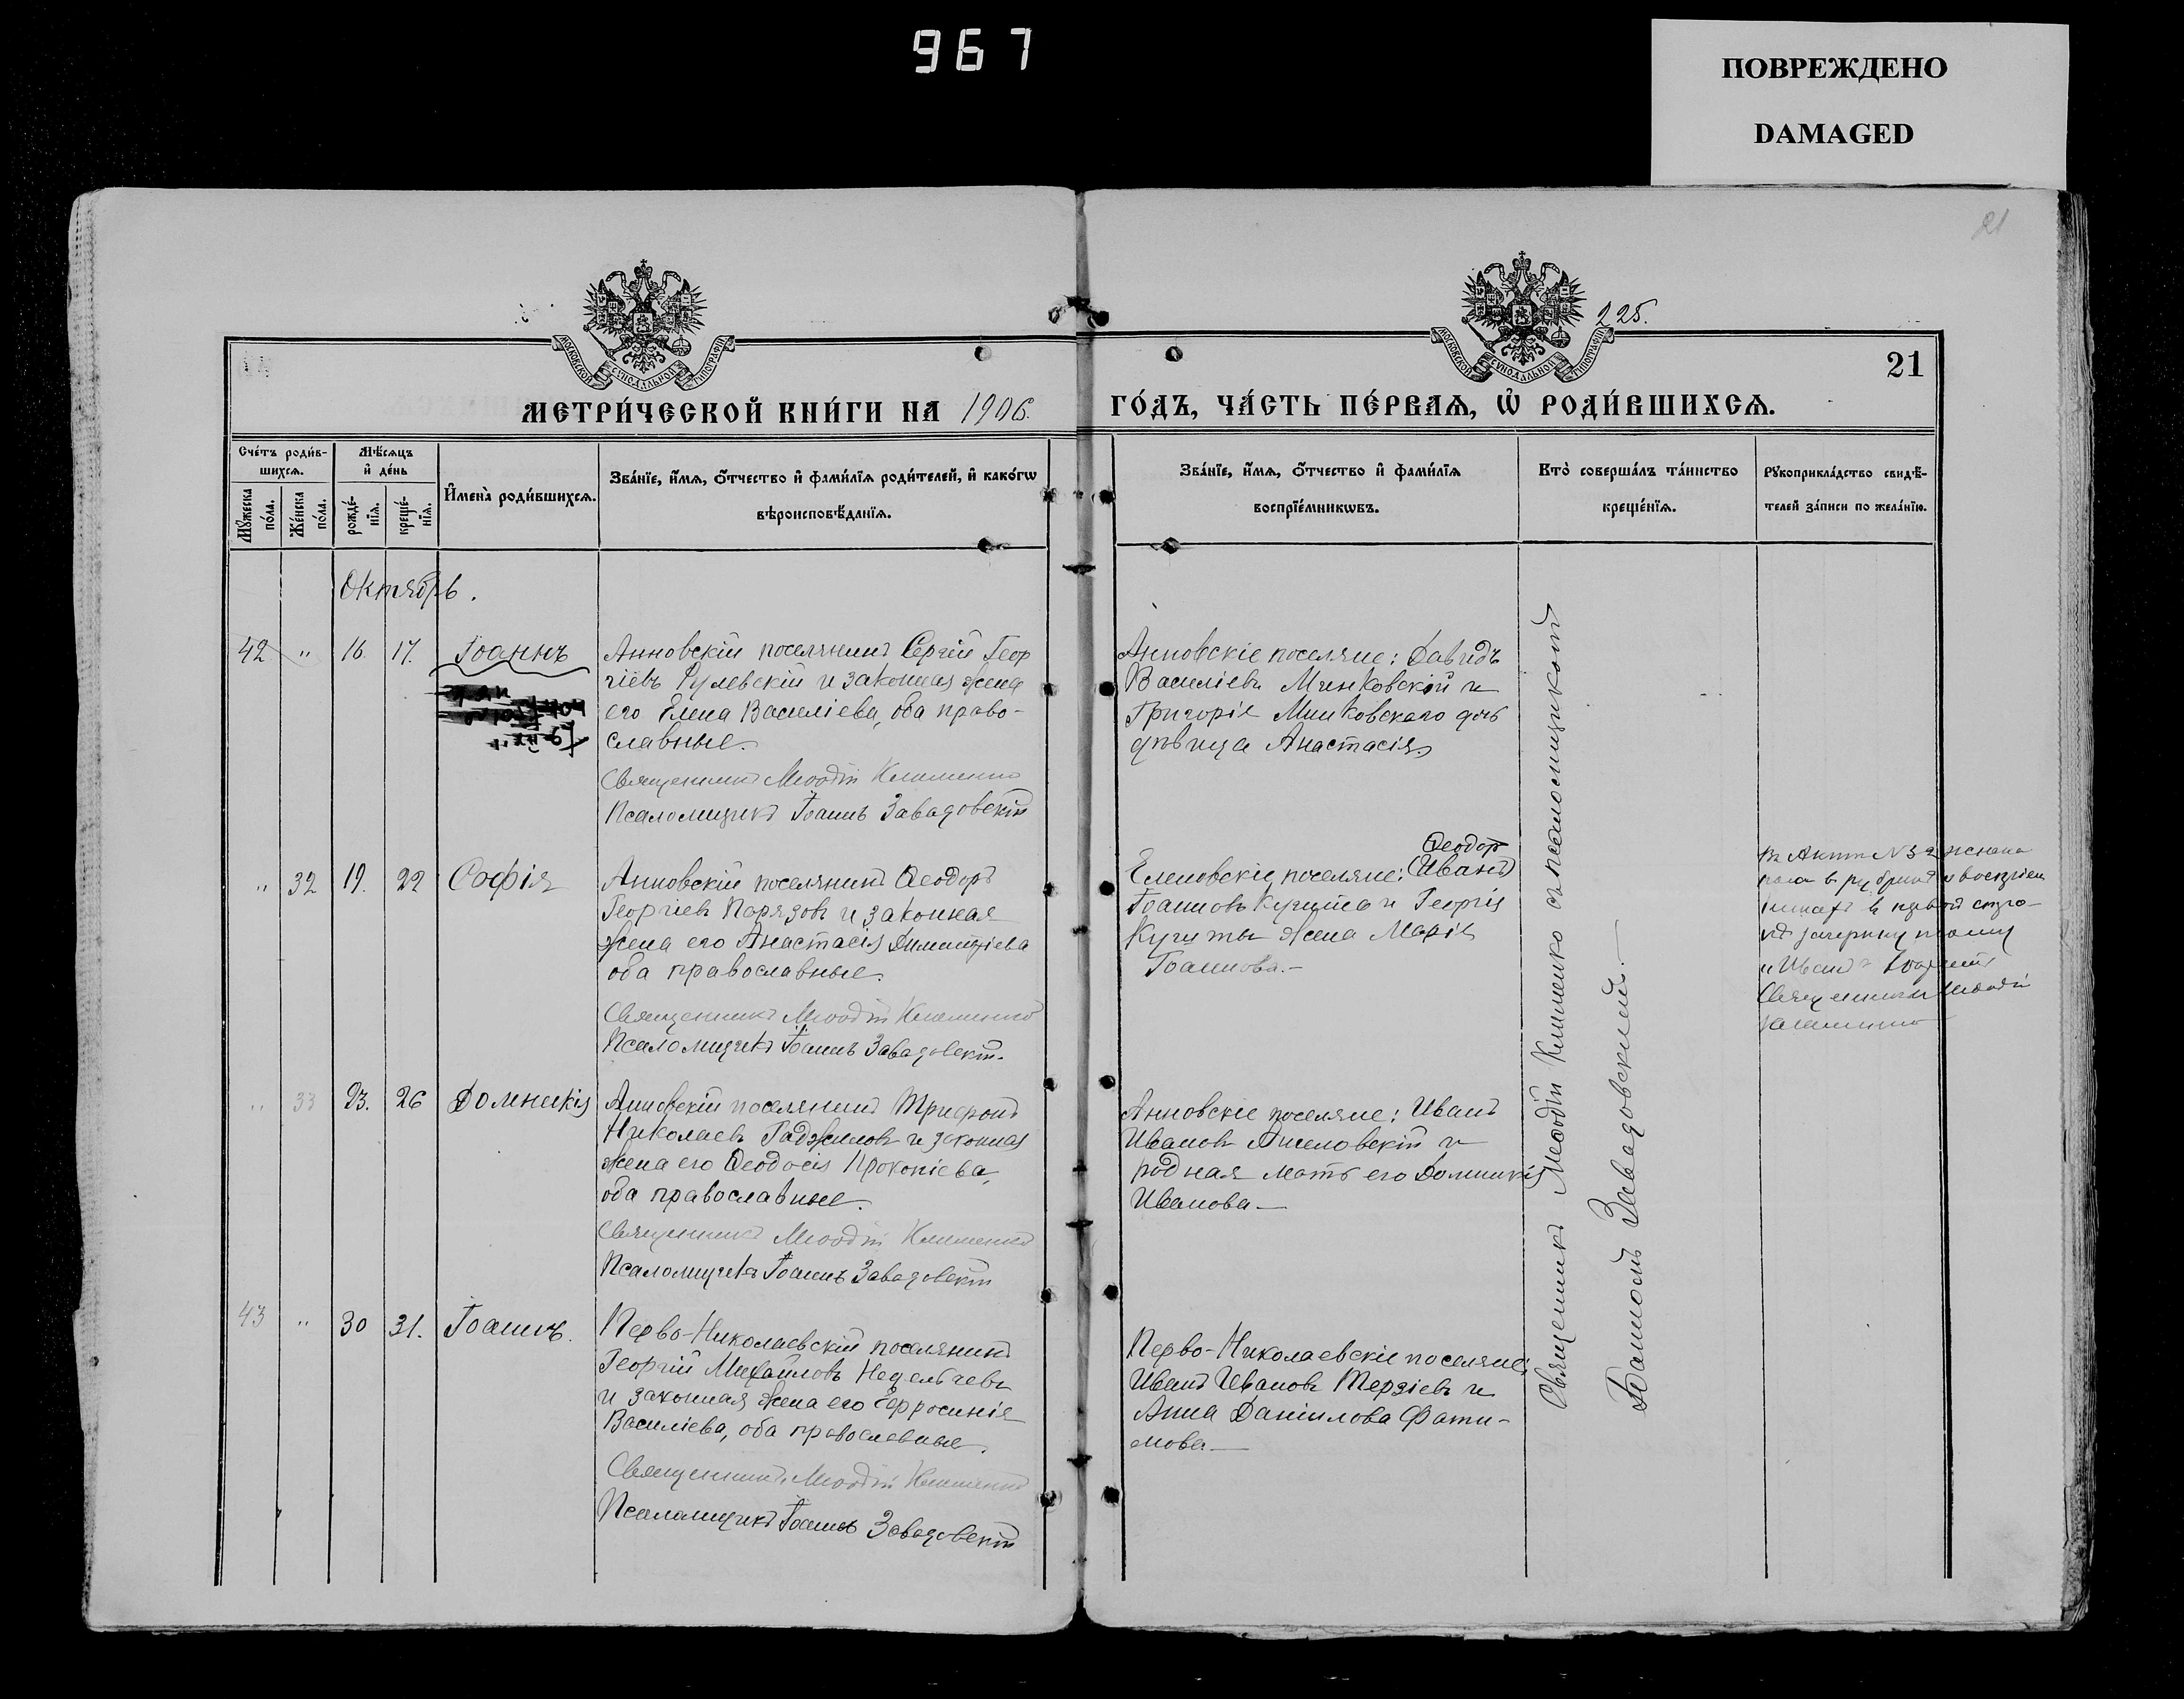 967
ПОВРЕЖДЕНО
DAMAGED
21
225.
21
МОСКОВСКОЙ СѴНОДАЛЬНОЙ ТИПОГРАФІИ
МОСКОВСКОЙ СѴНОДАЛЬНОЙ ТИПОГРАФІИ
МЕТРИ́ЧЕСКОЙ КНИ́ГИ НА 1906. ГО́ДЪ, ЧА́СТЬ ПЕ́РВАѦ, Ѡ҆ РОДИ́ВШИХСѦ.
Сче́тъ роди́в-
шихсѧ.
Мꙋ́жеска по́ла.
Же́нска по́ла.
Мѣ́сѧцъ
и҆ де́нь
рожде́-
нїѧ.
креще́-
нїѧ.
И҆мена̀ роди́вшихсѧ.
Зва́нїе, и҆́мѧ, ѻ҆́тчество и҆ фами́лїѧ роди́телей, и҆ како́гѡ
вѣроисповѣ́данїѧ.
Зва́нїе, и҆́мѧ, ѻ҆́тчество и҆ фами́лїѧ
воспрїе́мникѡвъ.
Кто̀ соверша́лъ та́инство
креще́нїѧ.
Рꙋкоприкла́дство свидѣ́-
телей за́писи по жела́нїю.
Октябрь.
42 " 16. 17. Іоаннъ
Анновскій поселянинъ Сергій Геор
гіевъ Рулевскій и законная жена
его Елена Василіева, оба право-
славные.
Священникъ Меѳодій Клименко
Псаломщикъ Іоаннъ Завадовскій
Анновскіе поселяне: Давидъ
Василіевъ Минковскій и
Григорія Минковскаго дочь
дѣвица Анастасія
" 32 19. 22 Софія
Анновскій поселянинъ Ѳеодоръ
Георгіевъ Парязовъ и законная
жена его Анастасія Димитріева
оба православные.
Священникъ Меѳодій Клименко
Псаломщикъ Іоаннъ Завадовскій.
Ѳеодоръ
Еленовскіе поселяне: (Иванъ)
Іоанновъ Кучита и Георгія
Кучиты жена Марія
Іоаннова.-
въ Актѣ № 32 женска
пола въ рубрикѣ о воспріем
никахъ въ первой стро-
кѣ зачеркнутому
"Иванъ"
Священникъ Меѳодій
Клименко
" 33 23. 26 Домникія
Анновскій поселянинъ Трифонъ
Николаевъ Гаджиловъ и законная
жена его Ѳеодосія Прокопіева,
оба православные.
Священникъ Меѳодій Клименко
Псаломщикъ Іоаннъ Завадовскій
Анновскіе поселяне: Иванъ
Ивановъ и
родная мать его Домникія
Иванова —
43 " 30 31. Іоаннъ.
Перво-Николаевскій поселянинъ
Георгій Михаиловъ Недельчевъ
и законная жена его Ефросинія
Василіева, оба православные.
Священникъ Меѳодій Клименко
Псаломщикъ Іоаннъ Завадовскій
Перво-Николаевскіе поселяне:
Иванъ Ивановъ Терзіевъ и
Анна Даніилова Фати-
мова —
Священникъ Меѳодій Клименко съ псаломщикомъ
Іоанномъ Завадовскимъ. —